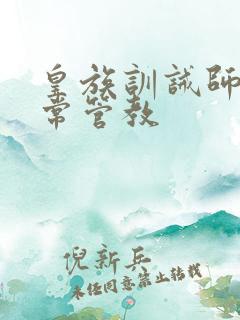 皇族訓誡師
常管教
倪新兵
未任同意禁止转载